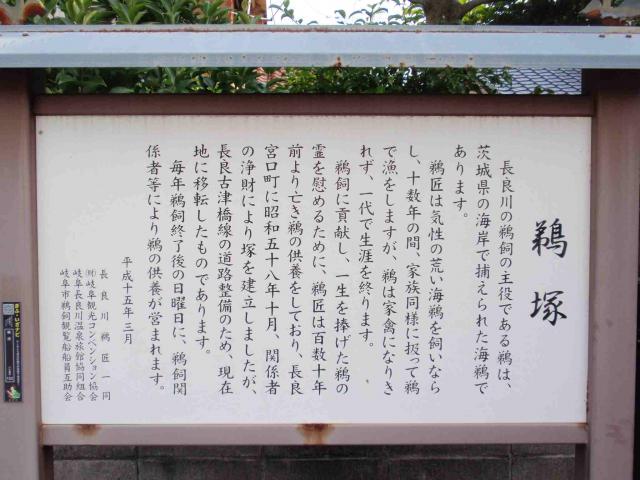 鵜塚
長良川の鵜飼の主役である鵜は、
茨城県の海岸で捕えられた海鵜で
あります。
鵜匠は気性の荒い海鵜を飼いなら
し、十数年の間、家族同様に扱って鵜
で漁をしますが、鵜は家禽になりき
れず、一代で生涯を終ります。
鵜飼に貢献し、一生を捧げた鵜の
霊を慰めるために、鵜匠は百数十年
前より亡き鵜の供養をしており、長良
宮口町に昭和五十八年十月、関係者
の浄財により塚を建立しましたが、
長良古津橋線の道路整備のため、現在
地に移転したものであります。
毎年鵜飼終了後の日曜日に、鵜飼関
係者等により鵜の供養が営まれます。
平成十五年三月
長良川鵜匠一同
㈶岐阜観光コンベンション協会
岐阜長良川温泉旅館協同組合
岐阜市鵜飼観覧船船員互助会